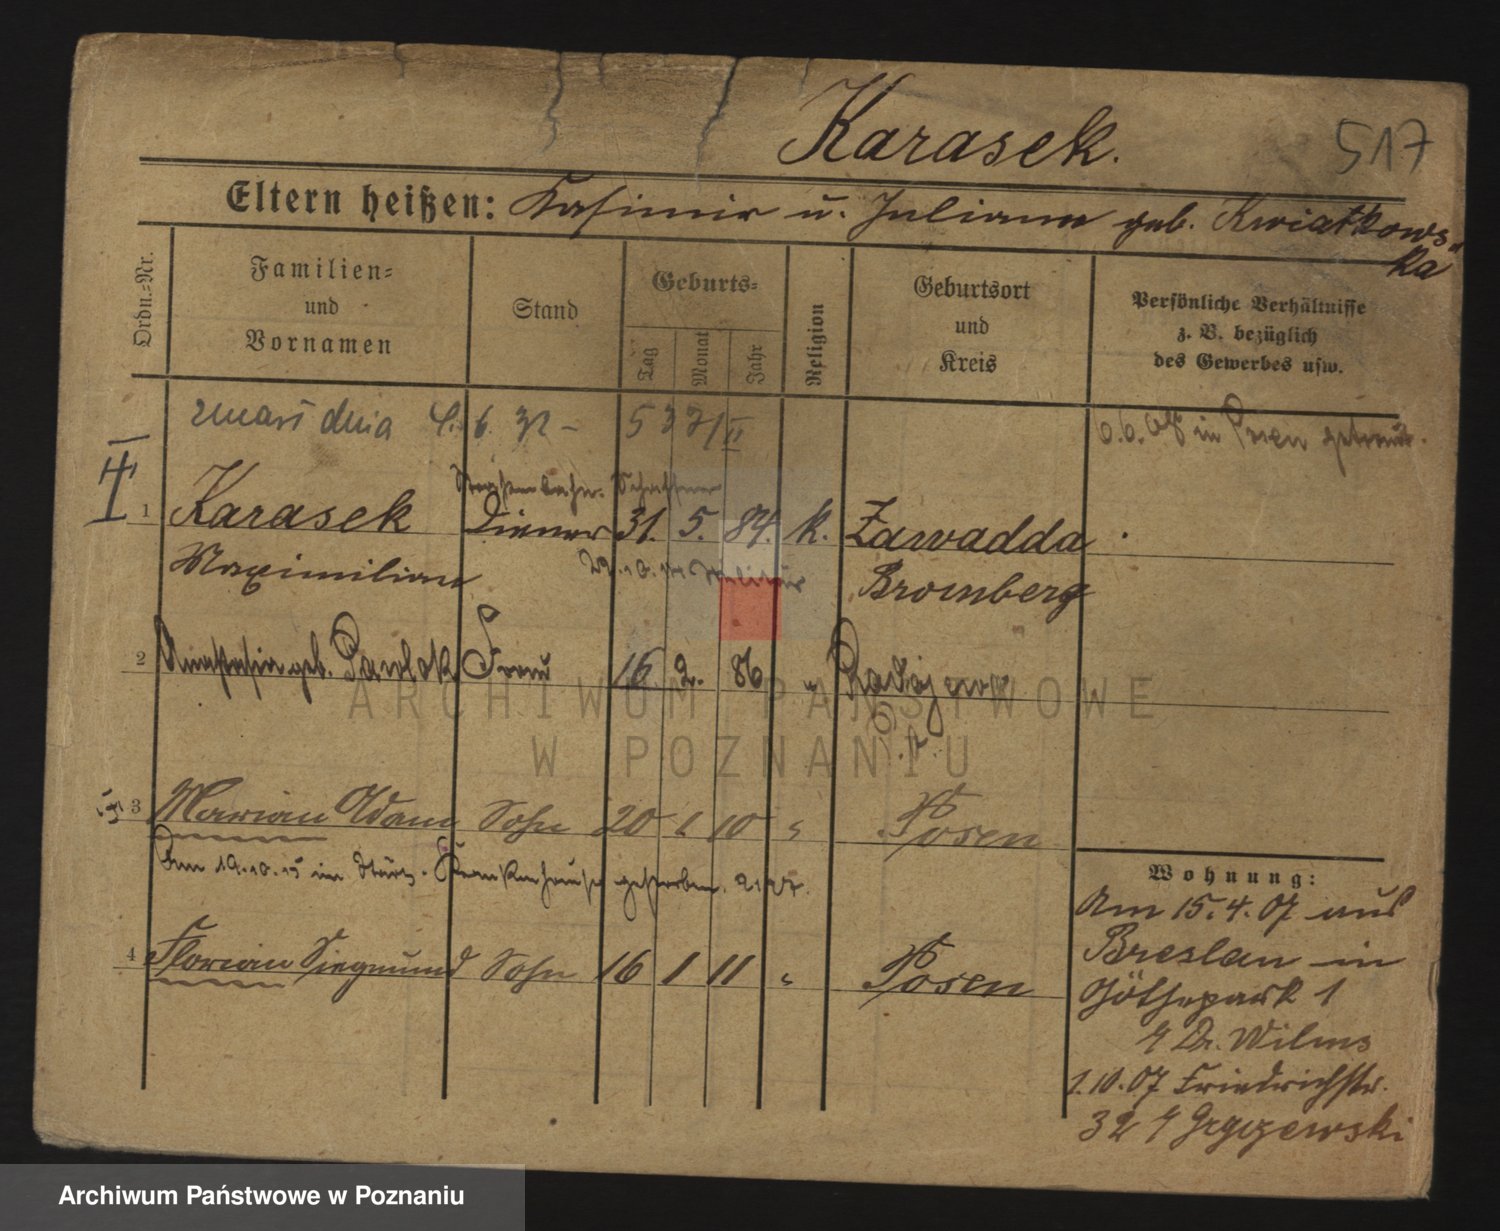 Karasek.
517
Eltern heißen: Kasimir u. Juliana geb. Kwiatkows-
ka
Ordn.-Nr.
Familien-
und
Vornamen
Stand
Geburts-
Tag
Monat
Jahr
Religion
Geburtsort
und
Kreis
Persönliche Verhältnisse
z. B. bezüglich
des Gewerbes usw.
zmarł dnia 4. 6. 32 -
6.6.08 in Posen getraut.
Straßenbahn-Schaffner
1 Karasek Diener 31. 5. 84. k. Zawadda
Maximilian Bromberg
2 Anastasia geb. Pawlak Frau 16 2. 86 "
3 Marian Adam Sohn 20 1 10 " Posen
Am 19.10.15 im Städt. Krankenhause gestorben.
4 Florian Siegmund Sohn 16 1 11 " Posen
Wohnung:
Am 15.4.07 aus
Breslau in
Göthepark 1
b Dr. Wilms
1.10.07 Friedrichstr.
32 b Grzczewski
ARCHIWUM PAŃSTWOWE
W POZNANIU
Archiwum Państwowe w Poznaniu